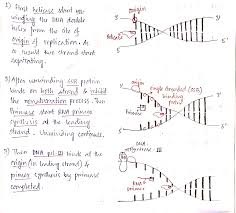 1) First helicase start un-
winding the DNA double
helix from the site of
origin of replication. As
a result two strand start
separating.
origin
Helicase
5'
3'
3'
5'
2) After unwinding SSB protein
binds on both strand & inhibit
the renaturation process. Then
Primase start RNA primer
synthesis at the leading
strand. Unwinding continues.
origin
Single stranded
binding
protein
Primase
3'
5'
3) Then DNA pol-III binds at the
origin (in leading strand) &
primer synthesis by primase
completed.
DNA
polymerase III
RNA
primer